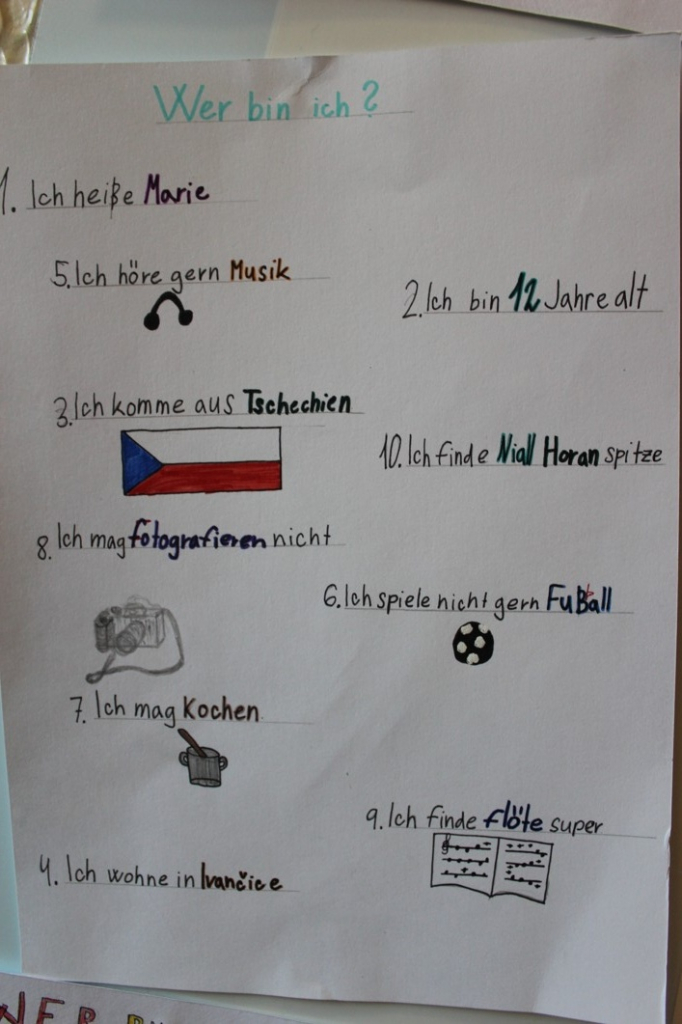 Wer bin ich?
1. Ich heiße Marie
5. Ich höre gern Musik
2. Ich bin 12 Jahre alt
3. Ich komme aus Tschechien
10. Ich finde Niall Horan spitze
8. Ich mag fotografieren nicht
6. Ich spiele nicht gern Fußball
7. Ich mag Kochen
9. Ich finde flöte super
4. Ich wohne in Ivančice